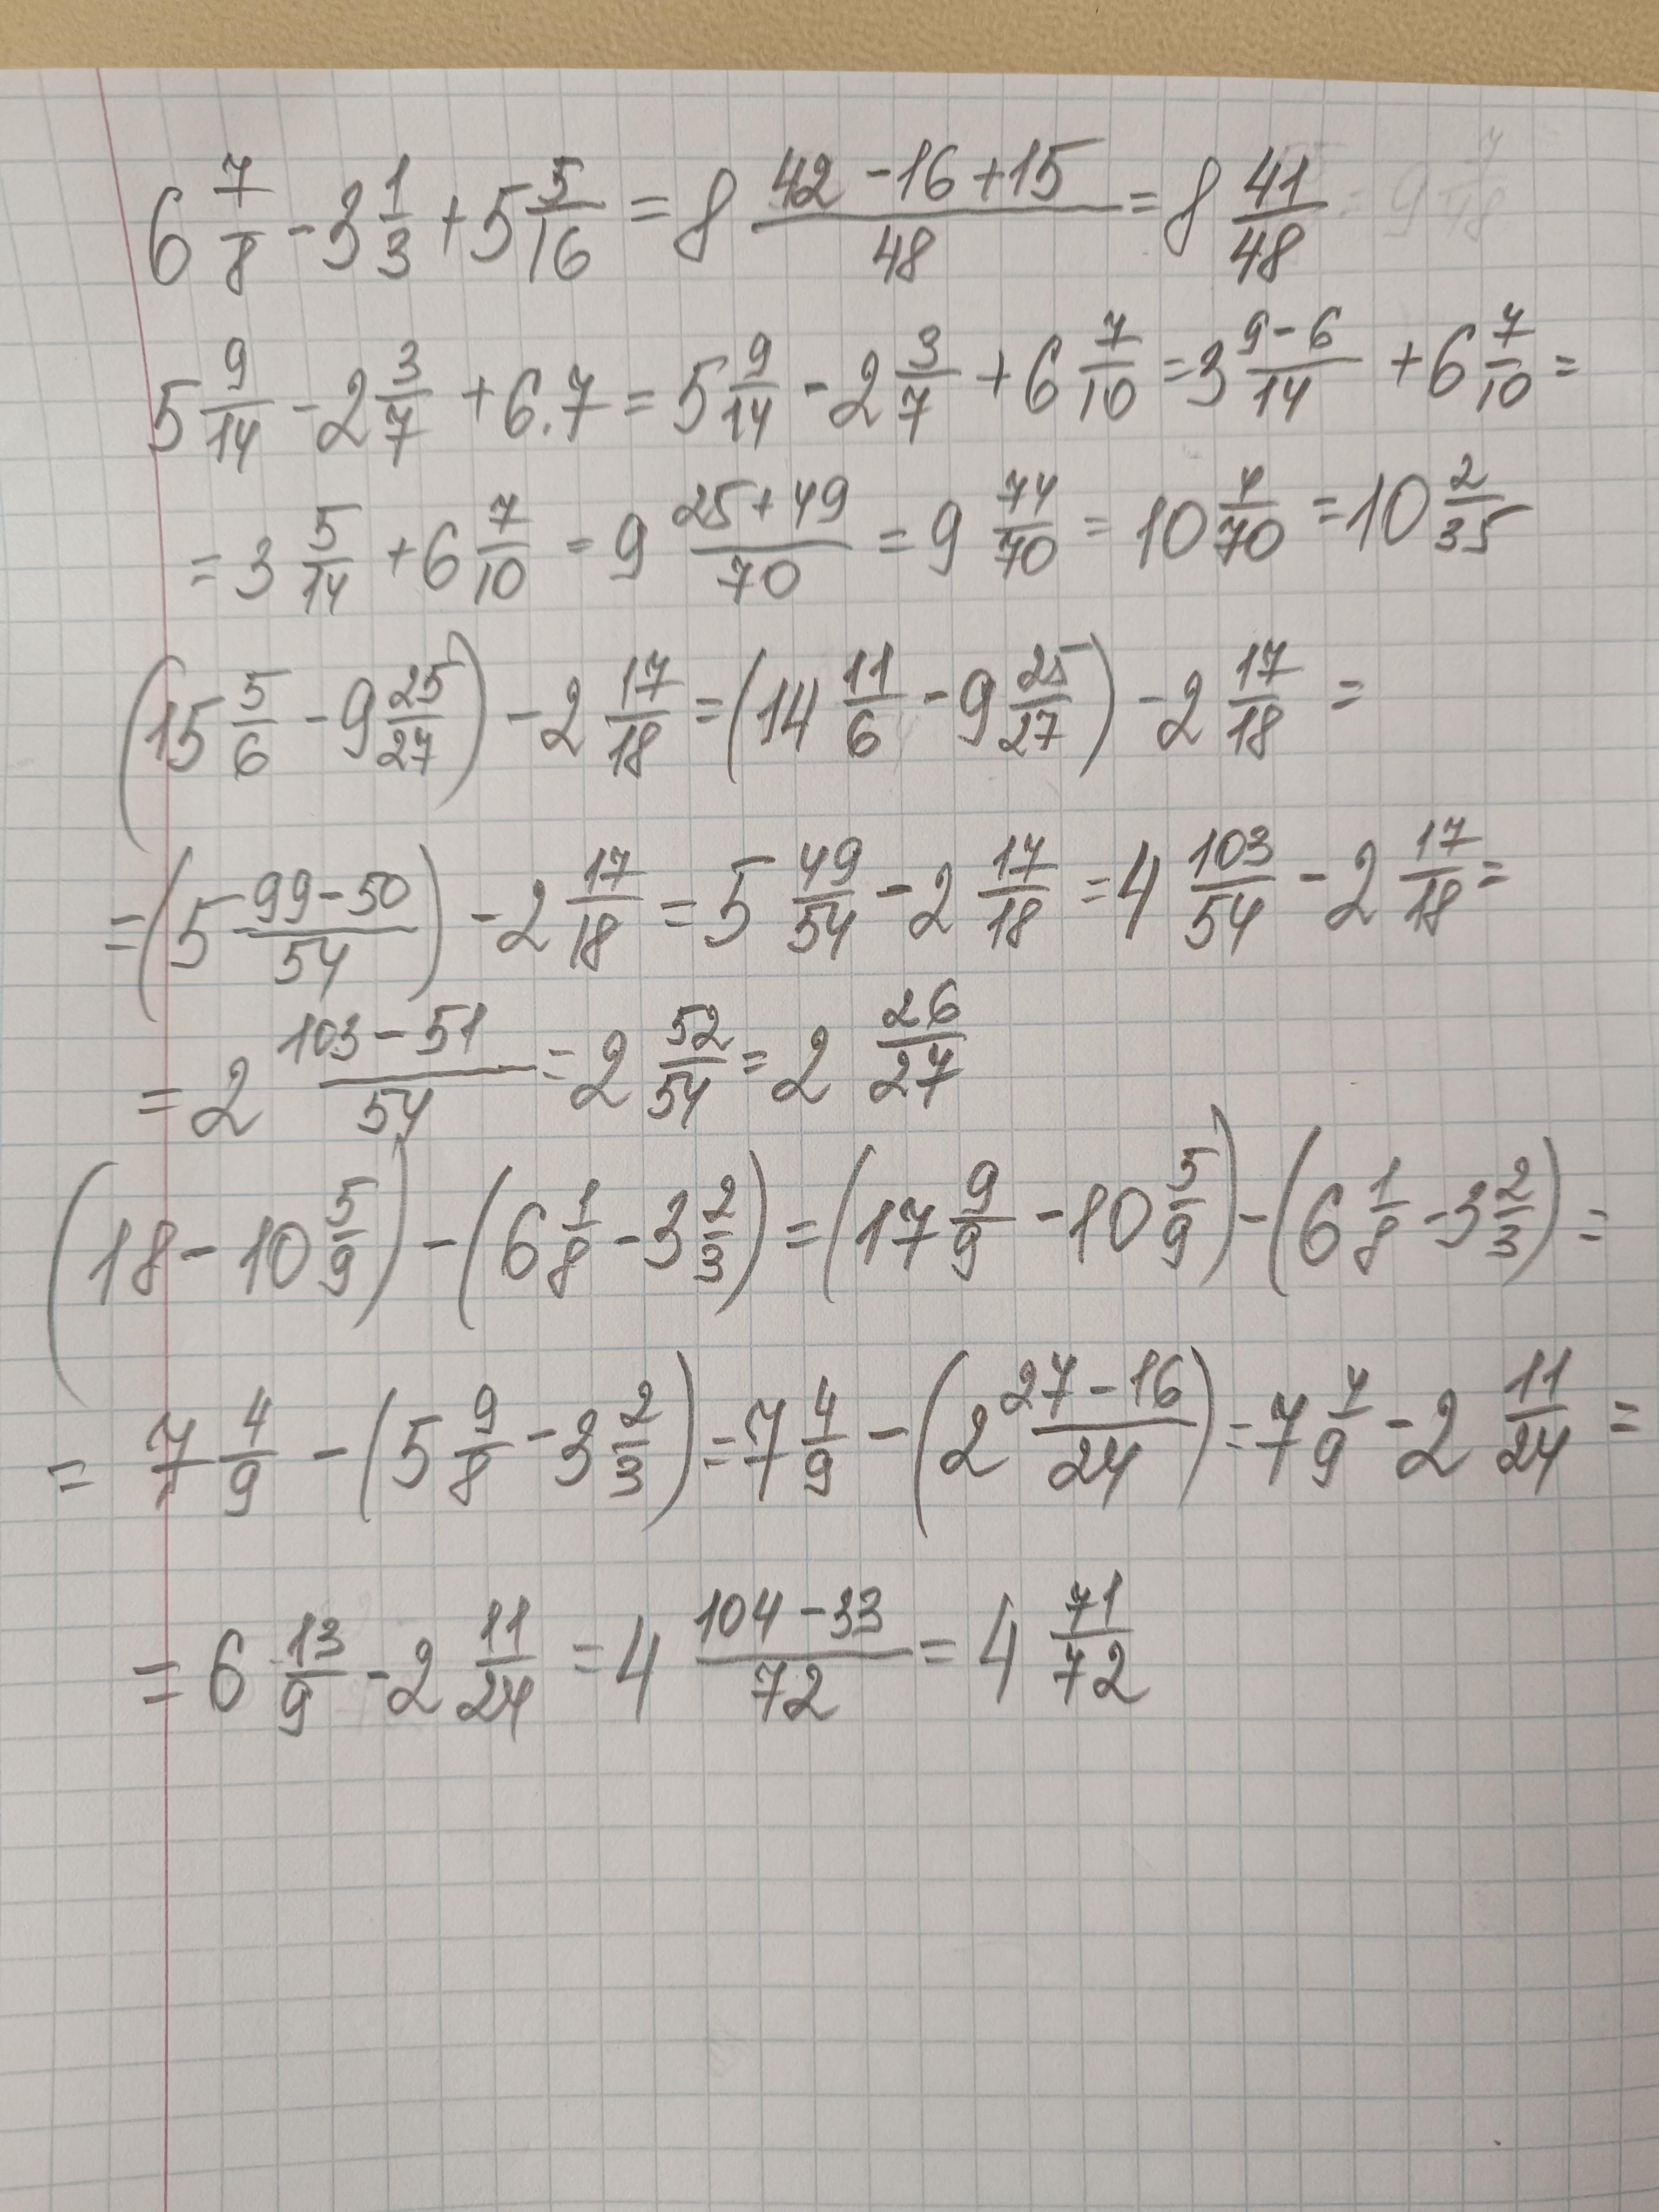 6 7/8 - 3 1/3 + 5 5/16 = 8 (42 - 16 + 15)/48 = 8 41/48
5 9/14 - 2 3/7 + 6.7 = 5 9/14 - 2 3/7 + 6 7/10 = 3 (9 - 6)/14 + 6 7/10 =
= 3 5/14 + 6 7/10 = 9 (25 + 49)/70 = 9 74/70 = 10 4/70 = 10 2/35
(15 5/6 - 9 25/27) - 2 17/18 = (14 11/6 - 9 25/27) - 2 17/18 =
= (5 (99 - 50)/54) - 2 17/18 = 5 49/54 - 2 17/18 = 4 103/54 - 2 17/18 =
= 2 (103 - 51)/54 = 2 52/54 = 2 26/27
(18 - 10 5/9) - (6 1/8 - 3 2/3) = (17 9/9 - 10 5/9) - (6 1/8 - 3 2/3) =
= 7 4/9 - (5 9/8 - 3 2/3) = 7 4/9 - (2 (27 - 16)/24) = 7 4/9 - 2 11/24 =
= 6 13/9 - 2 11/24 = 4 (104 - 33)/72 = 4 71/72